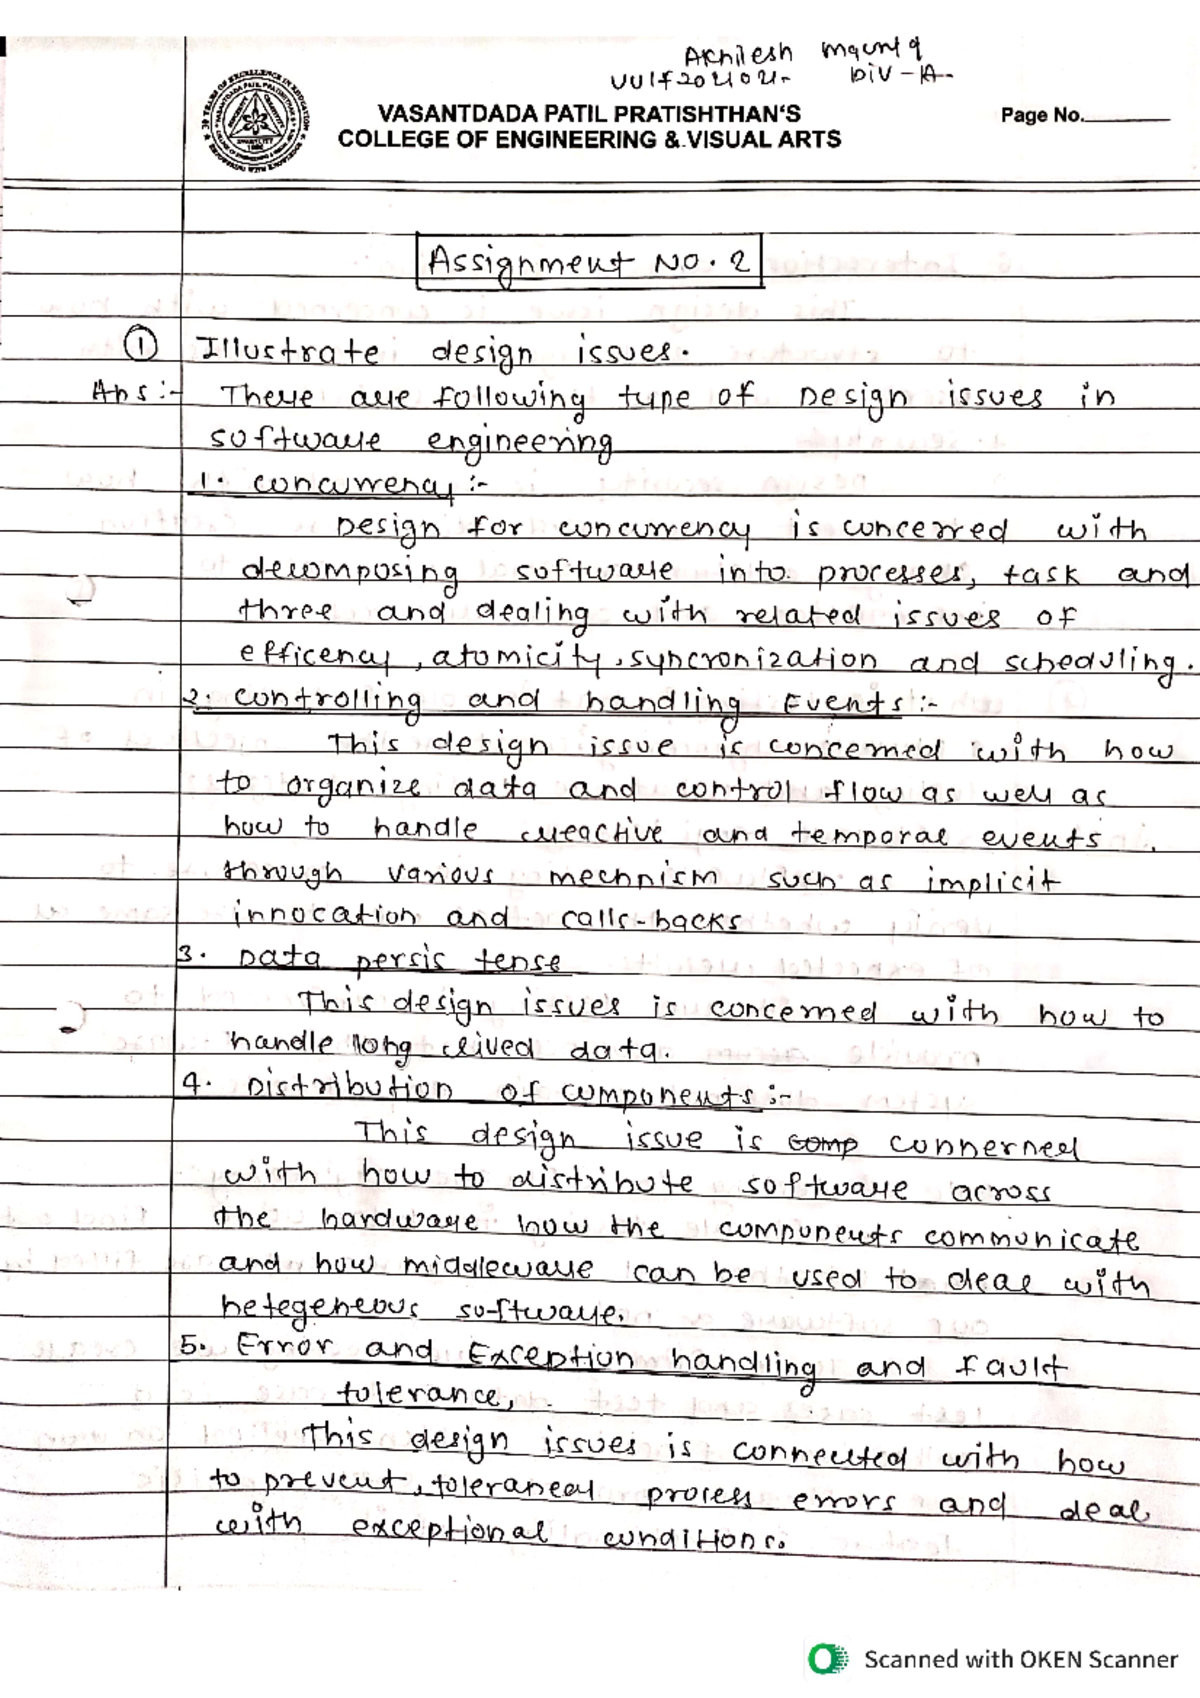 Akhilesh
DIV-A
VASANTDADA PATIL PRATISHTHAN'S
Page No.
COLLEGE OF ENGINEERING & VISUAL ARTS
Assignment No. 2
① Illustrate design issues.
Ans :- There are following type of Design issues in
software engineering
1. concurrency :-
Design for concurrency is concerred with
decomposing software into processes, task and
three and dealing with related issues of
efficency, atomicity, syncronization and scheduling.
2. controlling and handling Events :-
This design issue is concerned with how
to organize data and control flow as well as
how to handle reactive and temporal events
through various mechnism such as implicit
innocation and calls-backs
3. Data persis tense
This design issues is concerned with how to
handle long lived data.
4. Distribution of components :-
This design issue is comp connerned
with how to distribute software across
the hardware how the components communicate
and how middleware can be used to deal with
hetegeneous software.
5. Error and Exception handling and fault
tolerance,
This design issues is connected with how
to prevent, toleraneal process errors and deal
with exceptional conditions.
Scanned with OKEN Scanner